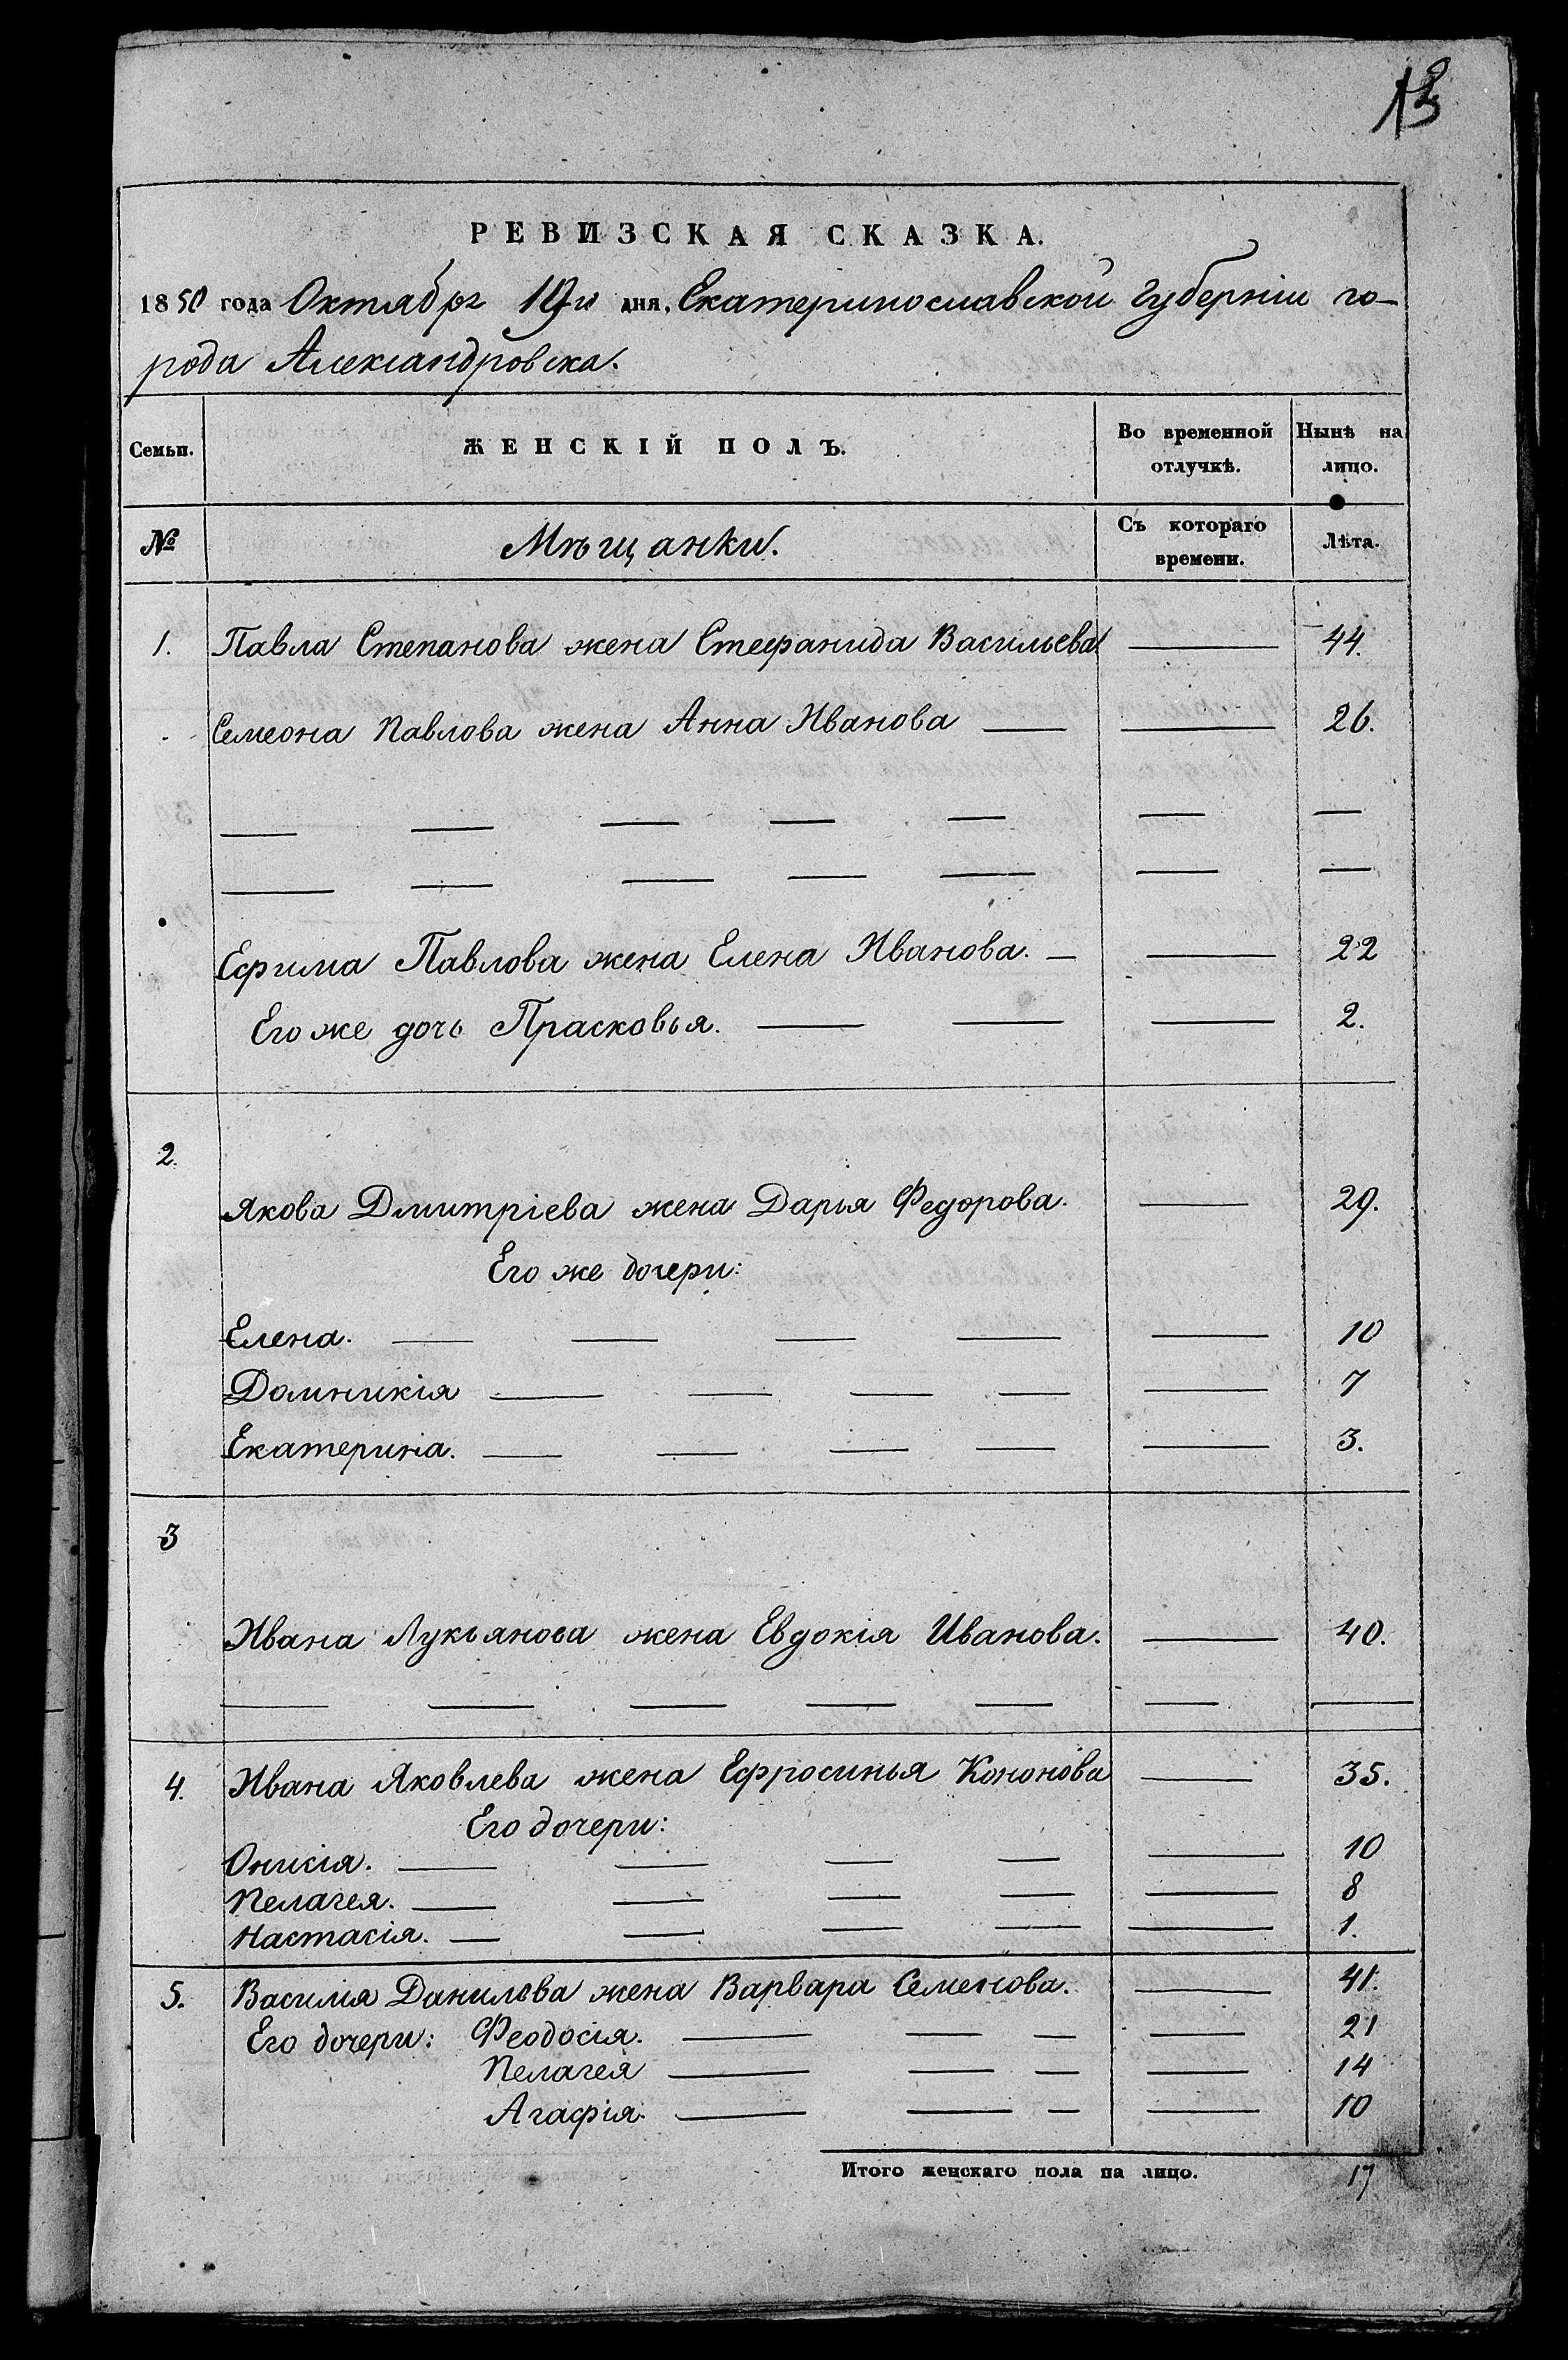 РЕВИЗСКАЯ СКАЗКА.
1850 года Октября 19го дня, Екатеринославской Губерніи го-
рода Александровска.
Семьи. ЖЕНСКІЙ ПОЛЪ. Во временной отлучкѣ. Нынѣ на лицо.
№ Мѣщанки. Съ котораго времени. Лѣта.
1. Павла Степанова жена Стефанида Васильева — 44.
Семеона Павлова жена Анна Иванова — — 26.
— — — — — — —
— — — — — — —
Ефима Павлова жена Елена Иванова. — — 22
Его же дочь Прасковья. — — — 2.
2.
Якова Дмитріева жена Дарья Федорова. — 29.
Его же дочери:
Елена. — — — — — 10
Домникія — — — — — 7
Екатерина. — — — — — 3.
3
Ивана Лукьянова жена Евдокія Иванова. — 40.
— — — — — — —
4. Ивана Яковлева жена Ефросинья Кононова — 35.
Его дочери:
Онисія. — — — — — 10
Пелагея. — — — — — 8
Настасія. — — — — — 1.
5. Василія Данилова жена Варвара Семенова. — 41.
Его дочери: Феодосія. — — — — 21
Пелагея — — — — 14
Агафія. — — — — 10
Итого женскаго пола на лицо. 17